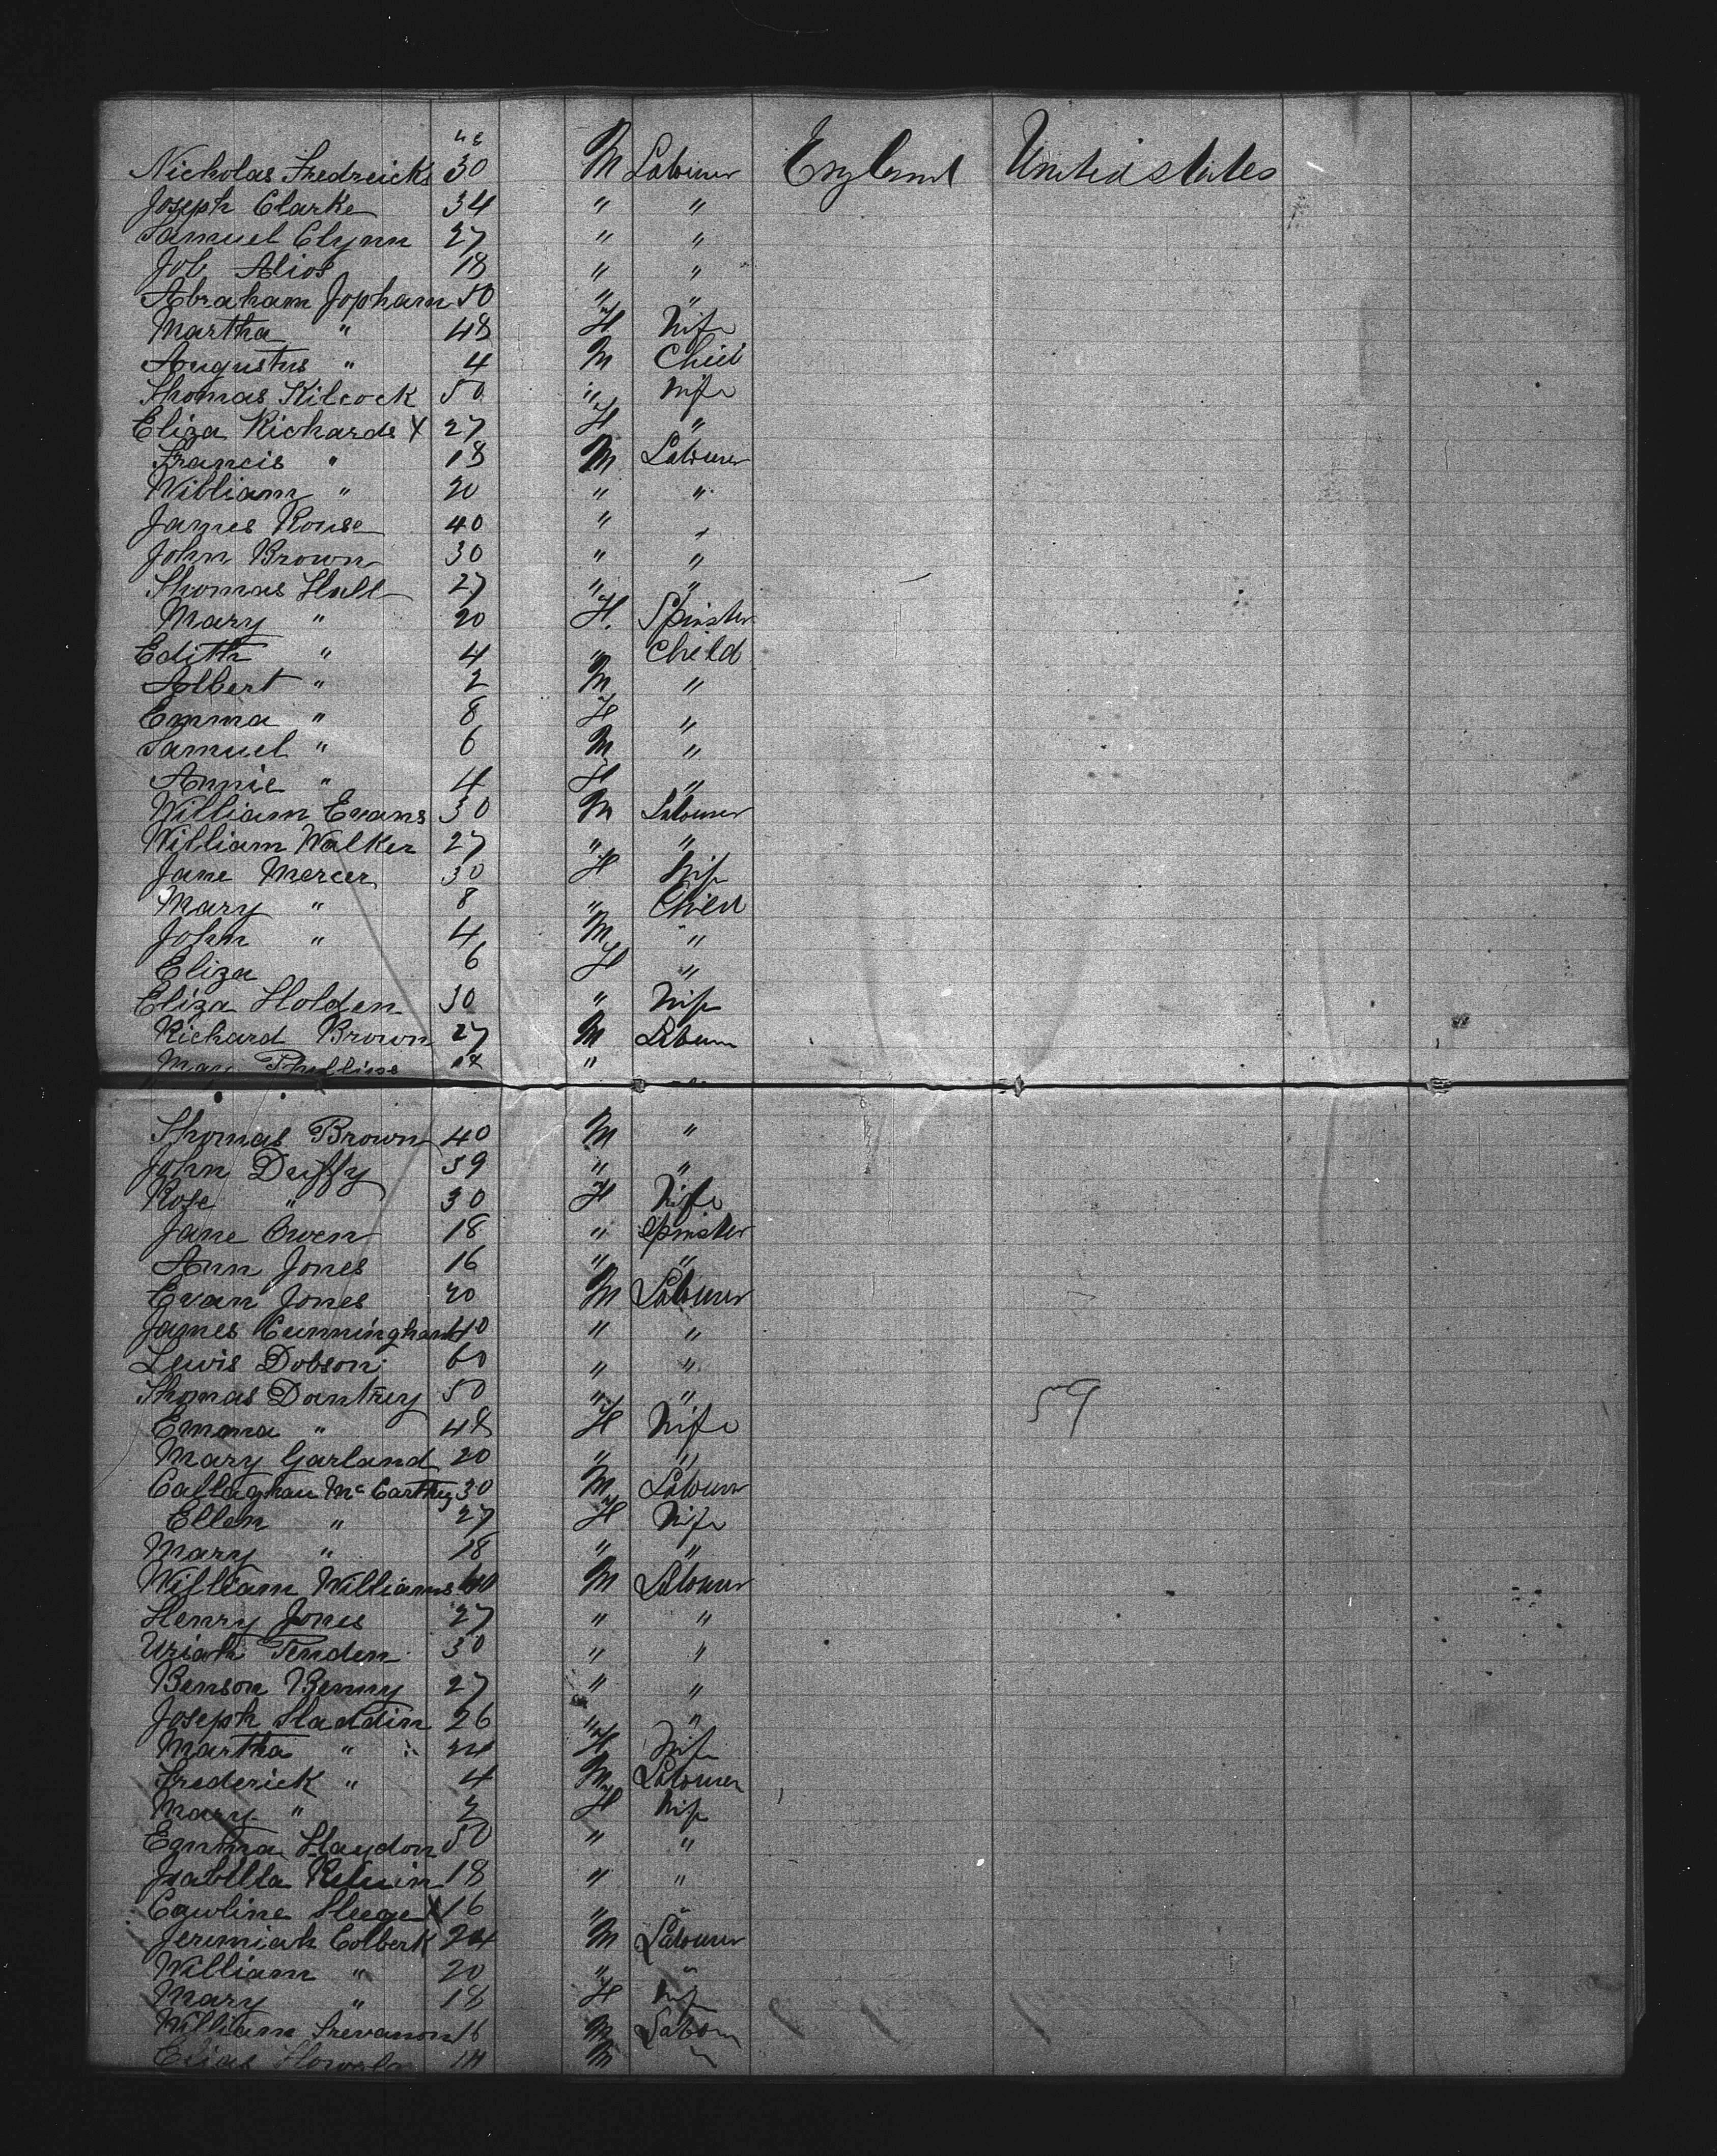 Nicholas Fredricks 30 M Labourer England United States
Joseph Clarke 34 " "
Samuel Clynn 27 " "
Job Alios 18 " "
Abraham Jopham 50 " "
Martha " 48 F Wife
Augustus " 4 M Child
Thomas Kilcock 50 " Wife
Eliza Richards X 27 F "
Francis " 18 M Labourer
William " 20 " "
James Rouse 40 " "
John Brown 30 " "
Thomas Hall 27 " "
Mary " 20 F. Spinster
Edith " 4 " Child
Albert " 2 M "
Emma " 8 F "
Samuel " 6 M "
Annie " 4 F "
William Evans 30 M Labourer
William Walker 27 " "
Jane Mercer 30 F Wife
Mary " 8 " Child
John " 4 M "
Eliza 6 F "
Eliza Holden 30 " Wife
Richard Brown 27 M Labourer
Mary Phillips "
Thomas Brown 40 M "
John Duffy 39 " "
Rose " 30 F Wife
Jane Owen 18 " Spinster
Ann Jones 16 " "
Evan Jones 20 M Labourer
James Cunningham 40 " "
Lewis Dobson 60 " "
Thomas Dantrey 50 " " 59
Emma " 48 F Wife
Mary Garland 20 " "
Callaghan McCarthy 30 M Labourer
Ellen " 27 F Wife
Mary " 18 " "
William Williams 40 M Labourer
Henry Jones 27 " "
Uriah Tenden 30 " "
Benson Benny 27 " "
Joseph Haddin 26 " "
Martha " 24 F Wife
Frederick " 4 M Labourer
Mary " 2 F Wife
Emma Haydon 50 " "
Isabella 18 " "
Cawline Heege X 16 " "
Jeremiah Colbert 24 M Labourer
William " 20 " "
Mary " 18 F Wife
William Trevanon 16 M Labour
Elias M "